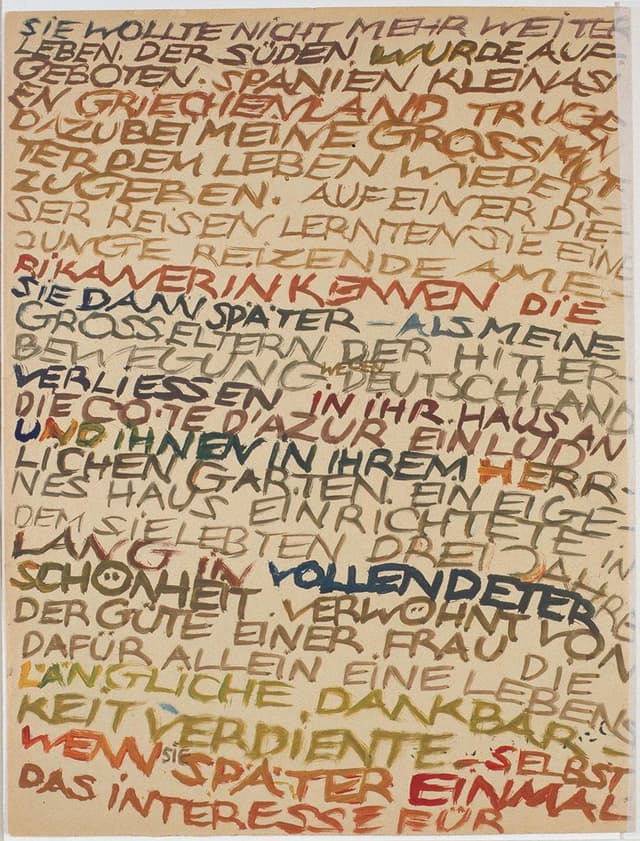 SIE WOLLTE NICHT MEHR WEITER
LEBEN. DER SÜDEN WURDE AUF
GEBOTEN. SPANIEN KLEINASI
EN GRIECHENLAND TRUGEN
DAZU BEI MEINE GROSSMUT
TER DEM LEBEN WIEDER
ZUGEBEN. AUF EINER DIE
SER REISEN LERNTEN SIE EINE
JUNGE REIZENDE AME
RIKANERIN KENNEN DIE
SIE DANN SPÄTER – ALS MEINE
GROSSELTERN DER HITLER
BEWEGUNG WEGEN DEUTSCHLAND
VERLIESSEN IN IHR HAUS AN
DIE COTE D'AZUR EINLUD
UND IHNEN IN IHREM HERR
LICHEN GARTEN. EIN EIGE
NES HAUS EINRICHTETE IN
DEM SIE LEBTEN DREI JAHRE
LANG IN VOLLENDETER
SCHÖNHEIT. VERWÖHNT VON
DER GÜTE EINER FRAU DIE
DAFÜR ALLEIN EINE LEBENS
LÄNGLICHE, DANKBAR
KEIT VERDIENTE – SELBST
WENN SIE SPÄTER EINMAL
DAS INTERESSE FÜR